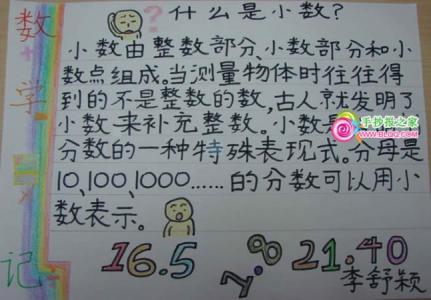 数学日记
什么是小数?
小数由整数部分、小数部分和小
数点组成。当测量物体时往往得
到的不是整数的数,古人就发明了
小数,来补充整数。小数是
手抄报之家
分数的一种特殊表现式。分母是
10,100,1000……的分数可以用小
数表示。
16.5 21.40
李舒颖